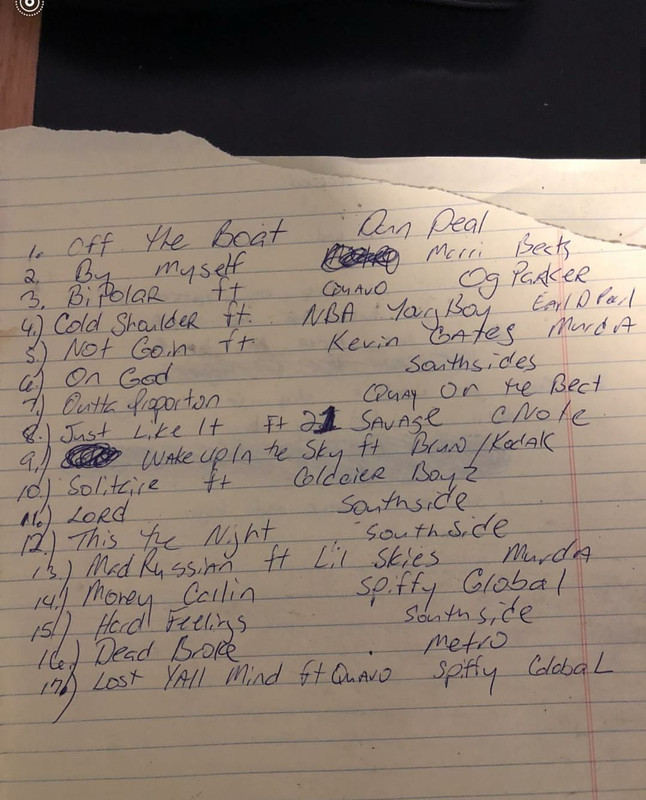 1. Off the Boat Dun Deal
2. By myself Marri Beats
3. Bipolar ft Quavo Og Parker
4.) Cold Shoulder ft. NBA YongBoy
5.) Not Goin ft Kevin Gates MurdA
6.) On God Southsides
7.) Outta proporton Quay On the Beat
8.) Just Like It Ft 21 SAVAGE CNote
9.) Wake up In the Sky ft Bruno/Kodak
10.) Solitaire ft
11.) LORD Southside
12.) This the Night Southside
13.) Mad Russian ft Lil Skies MurdA
14.) Money Callin Spiffy Global
15.) Hard Feelings Southside
16.) Dead Broke Metro
17.) Lost YAll Mind ft Quavo Spiffy Global